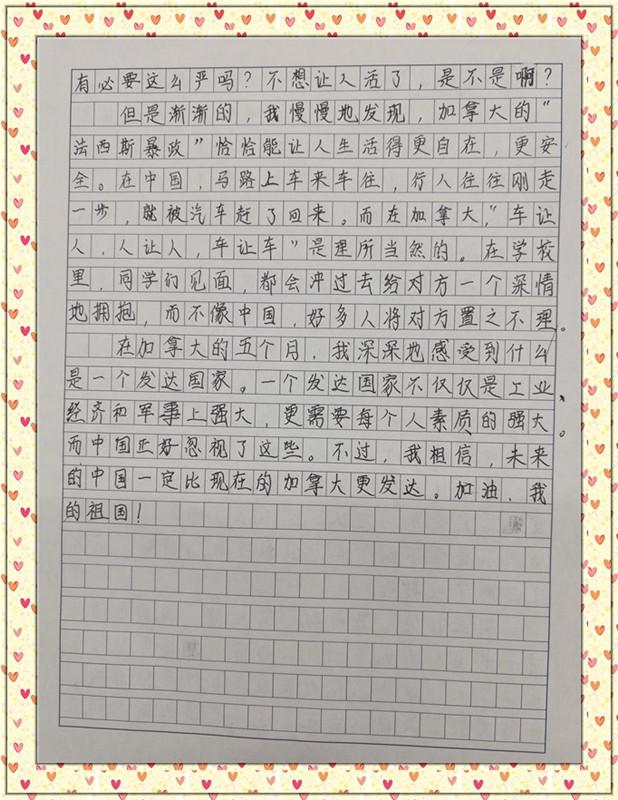 有必要这么严吗？不想让人活了，是不是啊？
但是渐渐的，我慢慢地发现，加拿大的“
法西斯暴政”恰恰能让人生活得更自在，更安
全。在中国，马路上车来车往，行人往往刚走
一步，就被汽车赶了回来。而在加拿大，“车让
人，人让人，车让车”是理所当然的。在学校
里，同学们见面，都会冲过去给对方一个深情
地拥抱，而不像中国，好多人将对方置之不理。
在加拿大的五个月，我深深地感受到什么
是一个发达国家。一个发达国家不仅仅是工业、
经济和军事上强大，更需要每个人素质的强大。
而中国正好忽视了这些。不过，我相信，未来
的中国一定比现在的加拿大更发达。加油，我
的祖国！